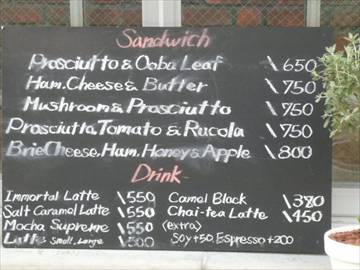 Sandwich
Prosciutto & Ooba Leaf \650
Ham. Cheese & Butter \750
Mushroom & Prosciutto \750
Prosciutto, Tomato & Rucola \750
Brie Cheese, Ham, Honey & Apple \800
Drink
Immortal Latte \550
Salt Caramel Latte \550
Mocha Supreme \550
Latte Small, Large \500
Camal Black \380
Chai-tea Latte \450
(extra)
Soy+50, Espresso+200